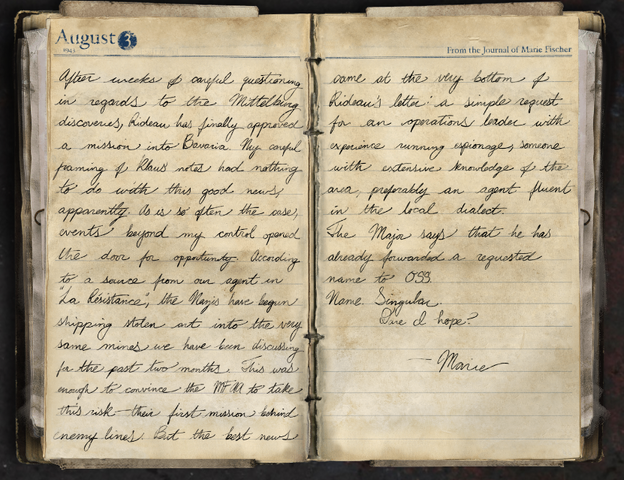 August 3
From the Journal of Marie Fischer
After weeks of careful questioning
in regards to the Mittelberg
discoveries, Rideau has finally approved
a mission into Bavaria. My careful
framing of Klaus' notes had nothing
to do with this good news,
apparently. As is so often the case,
events beyond my control opened
the door for opportunity. According
to a source from our agent in
"La Résistance", the Nazis have begun
shipping stolen art into the very
same mines we have been discussing
for the past two months. This was
enough to convince the MFAA to take
this risk—their first mission behind
enemy lines. But the best news
came at the very bottom of
Rideau's letter: a simple request
for an operations leader with
experience running espionage, someone
with extensive knowledge of the
area, preferably an agent fluent
in the local dialect.
The Major says that he has
already forwarded a requested
name to OSS.
Name. Singular.
Dare I hope?
— Marie